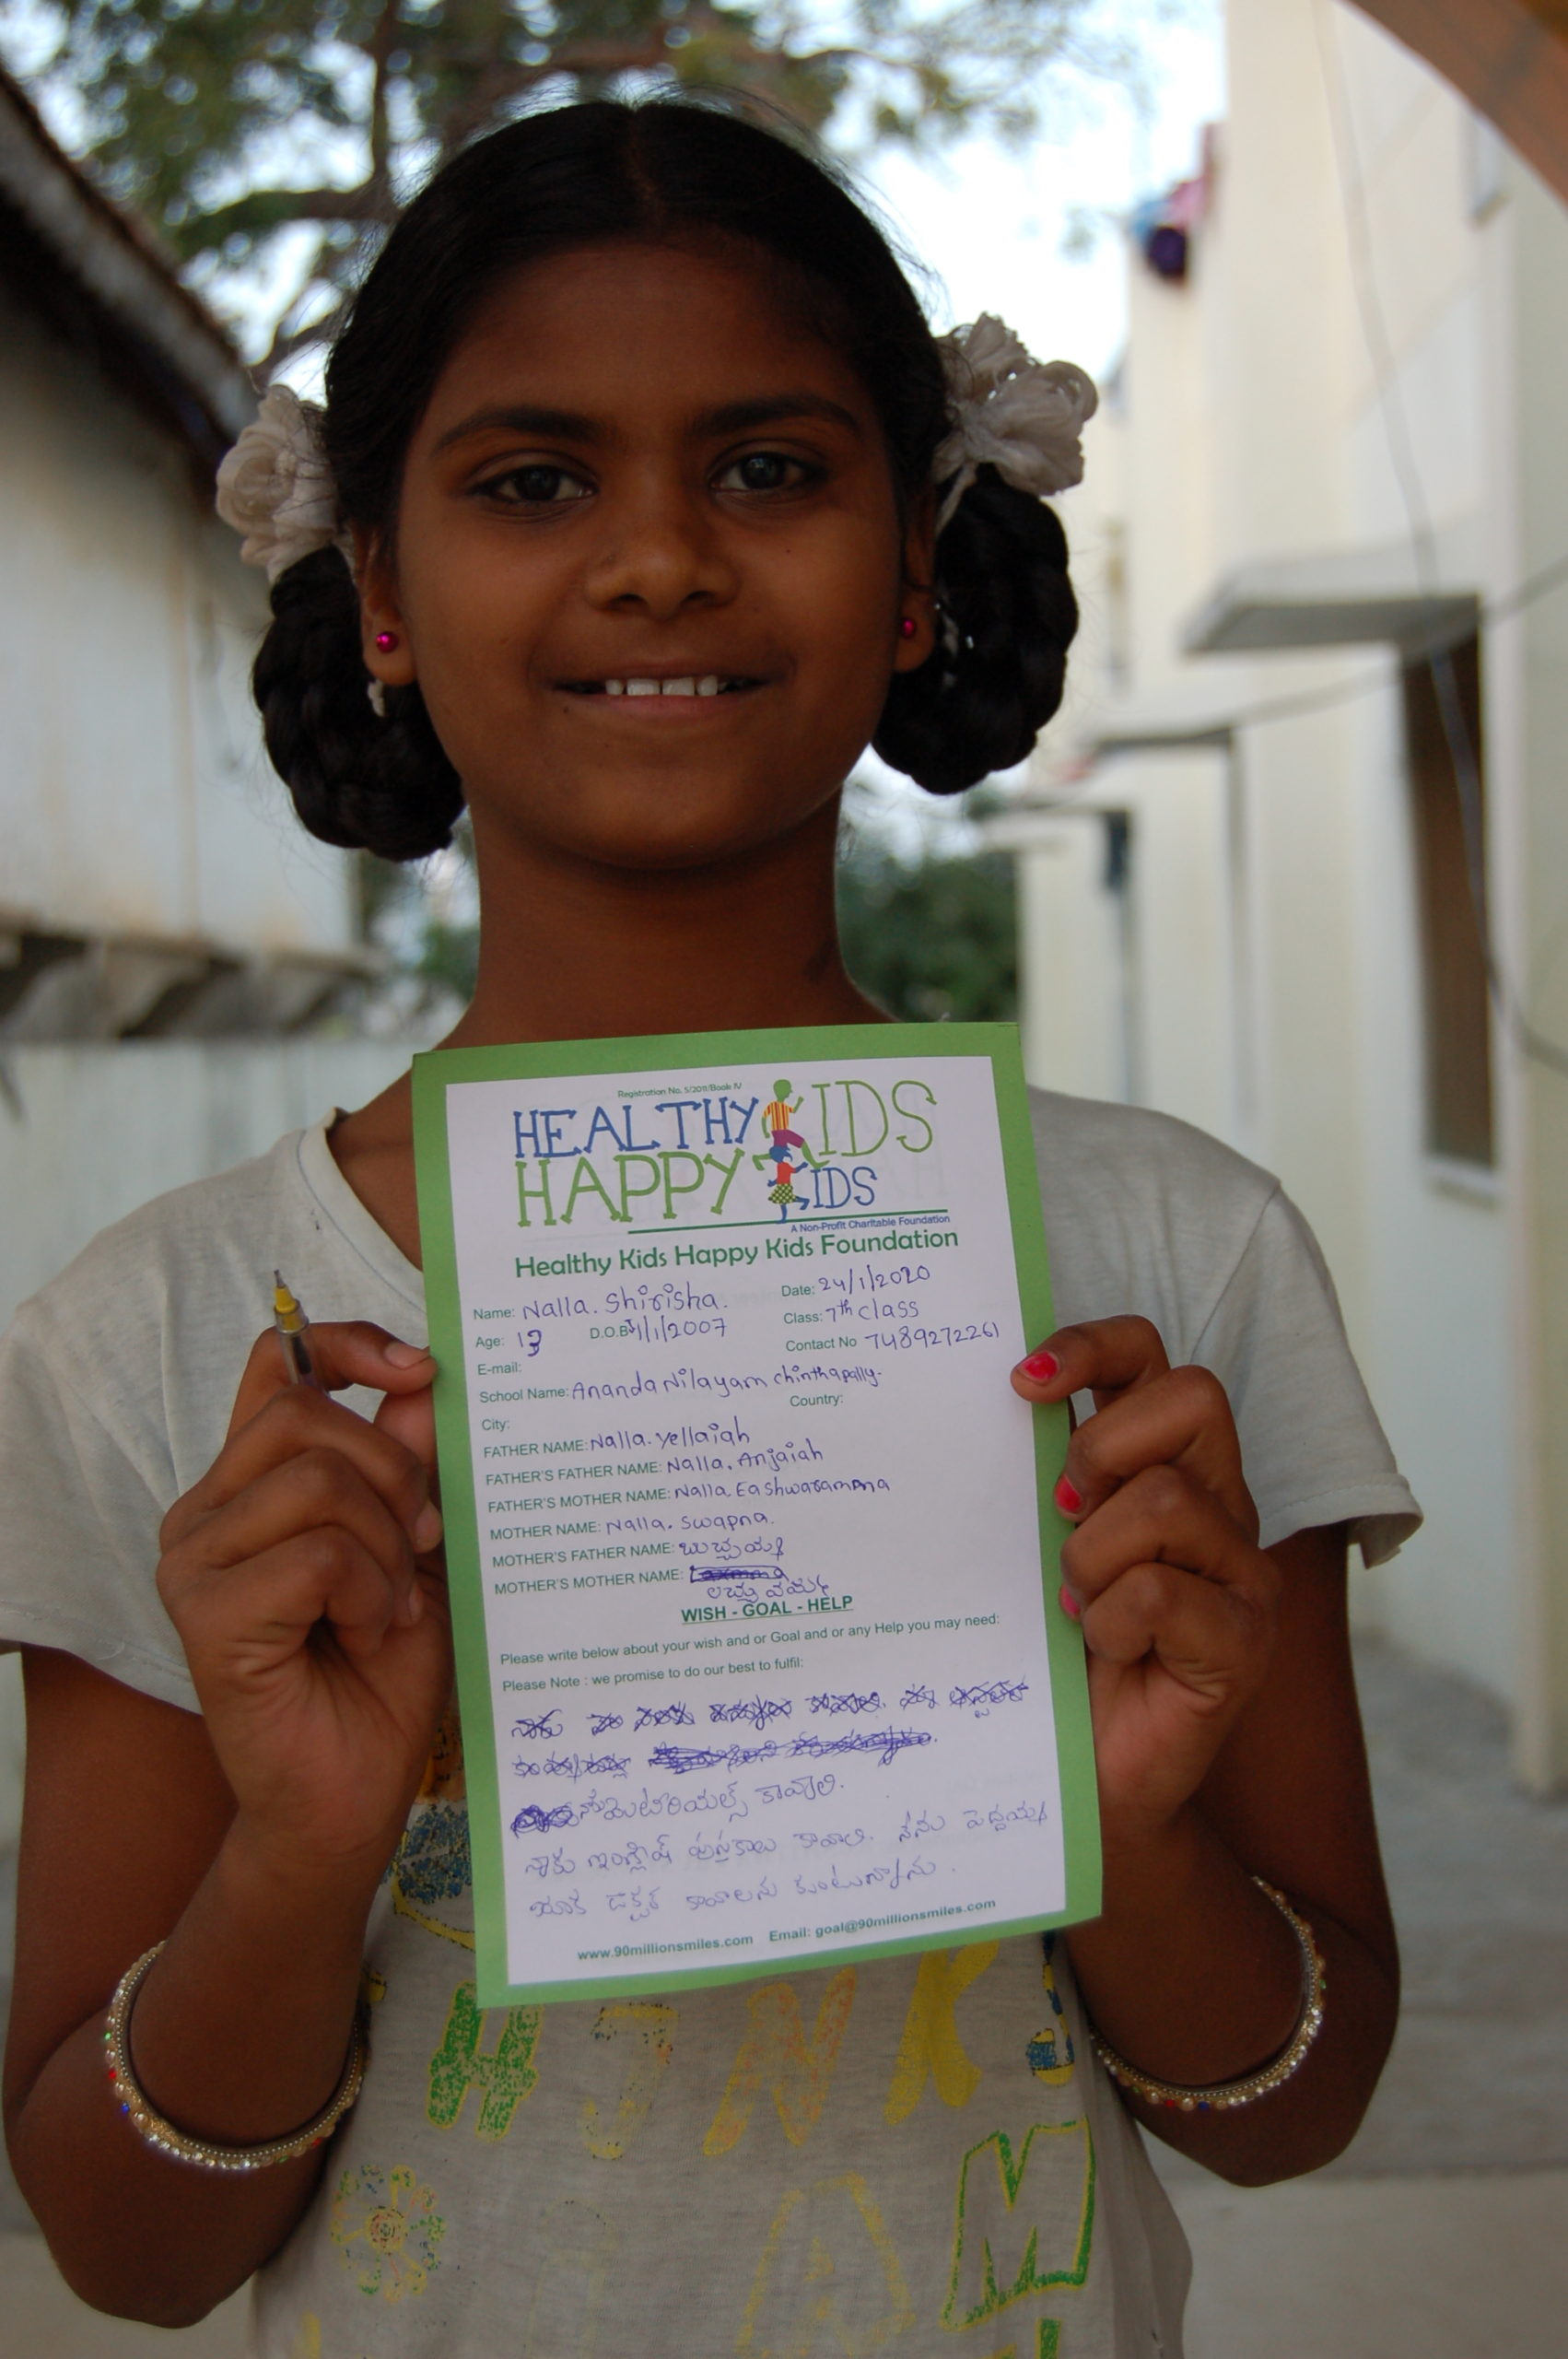 Registration No. 5/2011/Book IV
HEALTHY KIDS
HAPPY KIDS
A Non-Profit Charitable Foundation
Healthy Kids Happy Kids Foundation
Name: Nalla. Shirisha. Date: 24/1/2020
Age: 13 D.O.B 1/1/2007 Class: 7th class
E-mail: Contact No 7489272261
School Name: Ananda Nilayam chinthapally.
City: Country:
FATHER NAME: Nalla. Yellaiah
FATHER'S FATHER NAME: Nalla. Anjaiah
FATHER'S MOTHER NAME: Nalla Eashwaramma
MOTHER NAME: Nalla. Swapna.
MOTHER'S FATHER NAME: బుచ్చయ్య
MOTHER'S MOTHER NAME:
WISH - GOAL - HELP
Please write below about your wish and or Goal and or any Help you may need:
Please Note : we promise to do our best to fulfil:
మెటీరియల్స్ కావాలి.
నాకు ఇంగ్లీష్ పుస్తకాలు కావాలి. నేను పెద్దయ్య
డాక్టర్ కావాలను కుంటున్నాను.
www.90millionsmiles.com Email: goal@90millionsmiles.com